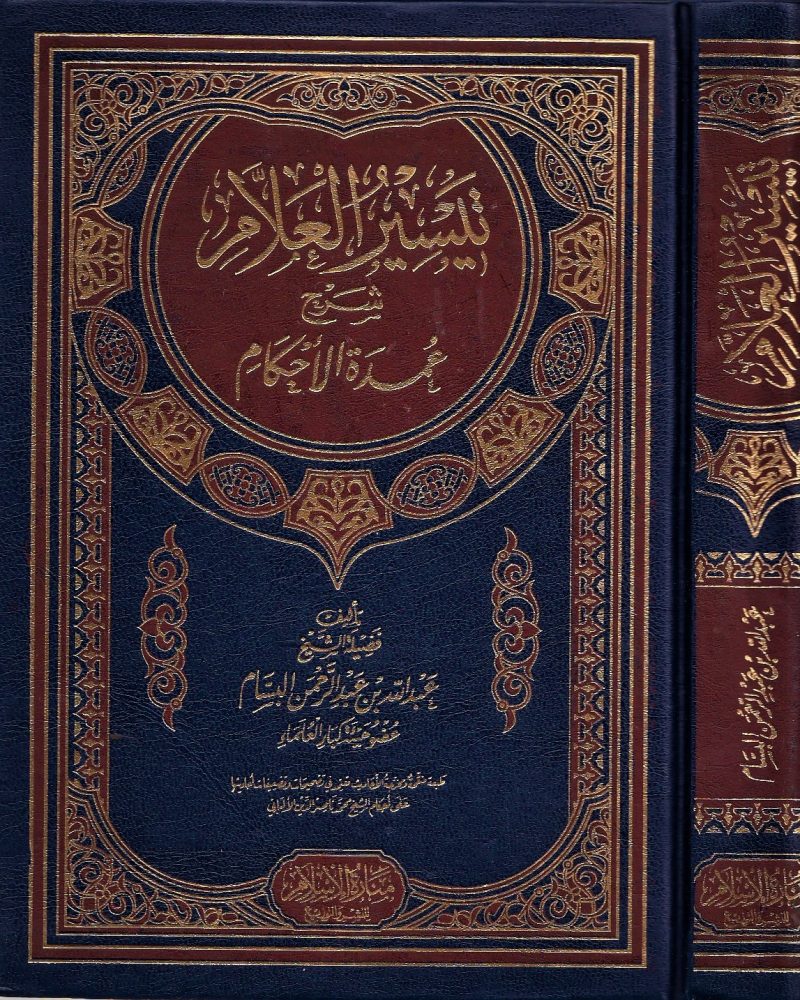 تَيْسِيرُ العَلاَّمِ
شَرْح
عُمدَة الأَحْكَامِ
تأليف
فضيلة الشيخ
عَبْد الله بن عَبْد الرَّحمن البسَّام
عضو هيئة كبار العُلماء
طبعة منقحة ومزيدة الأحاديث تعتمد في تصحيحات وتضعيفات أحاديثها
على أحكام الشيخ محمد ناصر الدين الألباني
منارة الإسلام
للنشر والتوزيع
تَيْسِيرُ العَلاَّمِ
عبد الله بن عبد الرحمن البسام
منارة الإسلام
للنشر والتوزيع